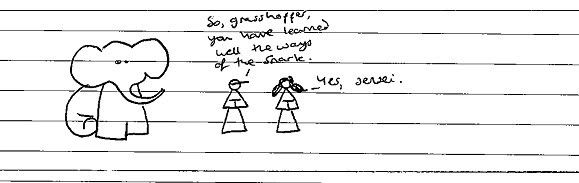 So, grasshopper,
you have learned
well the ways
of the snark.
Yes, sensei.